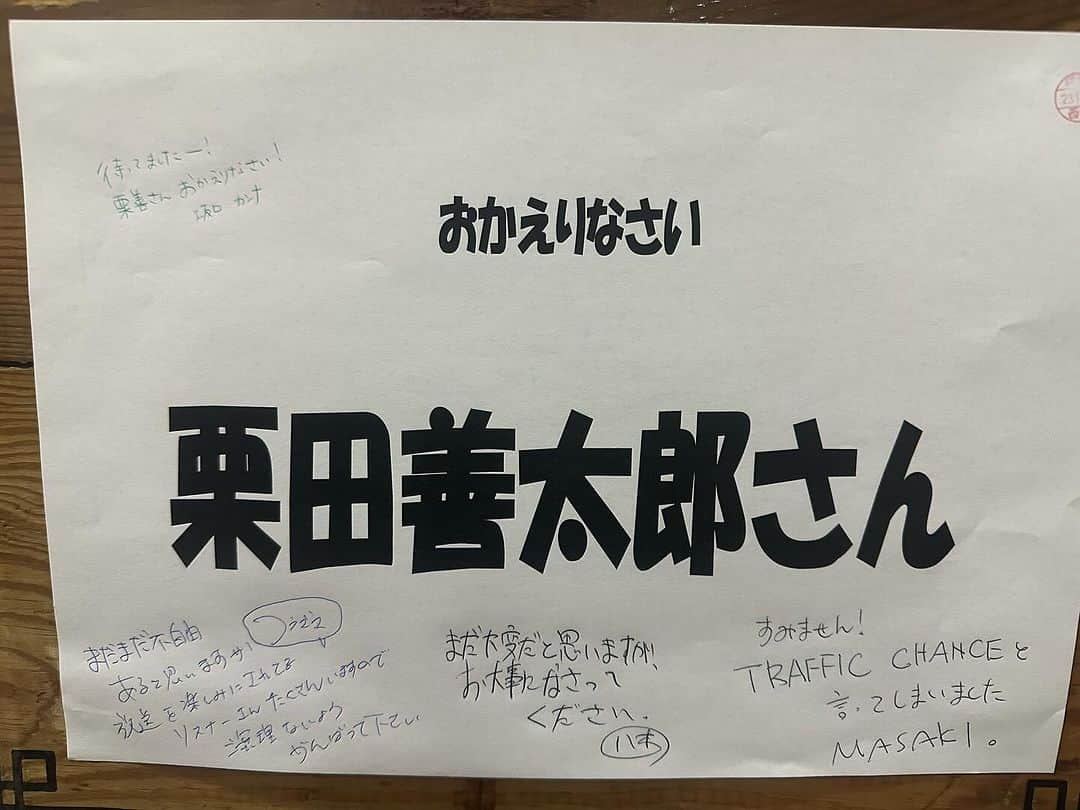 待ってましたー!
栗善さん おかえりなさい!
堀口 カンナ
おかえりなさい
栗田善太郎さん
まだまだ不自由
あると思いますが
放送を楽しみにされてる
リスナーさんたくさんいますので
無理ないよう
がんばって下さい
まだ大変だと思いますが、
お大事になさって
ください.
八木
すみません!
TRAFFIC CHANCEと
言ってしまいました
MASAKI。